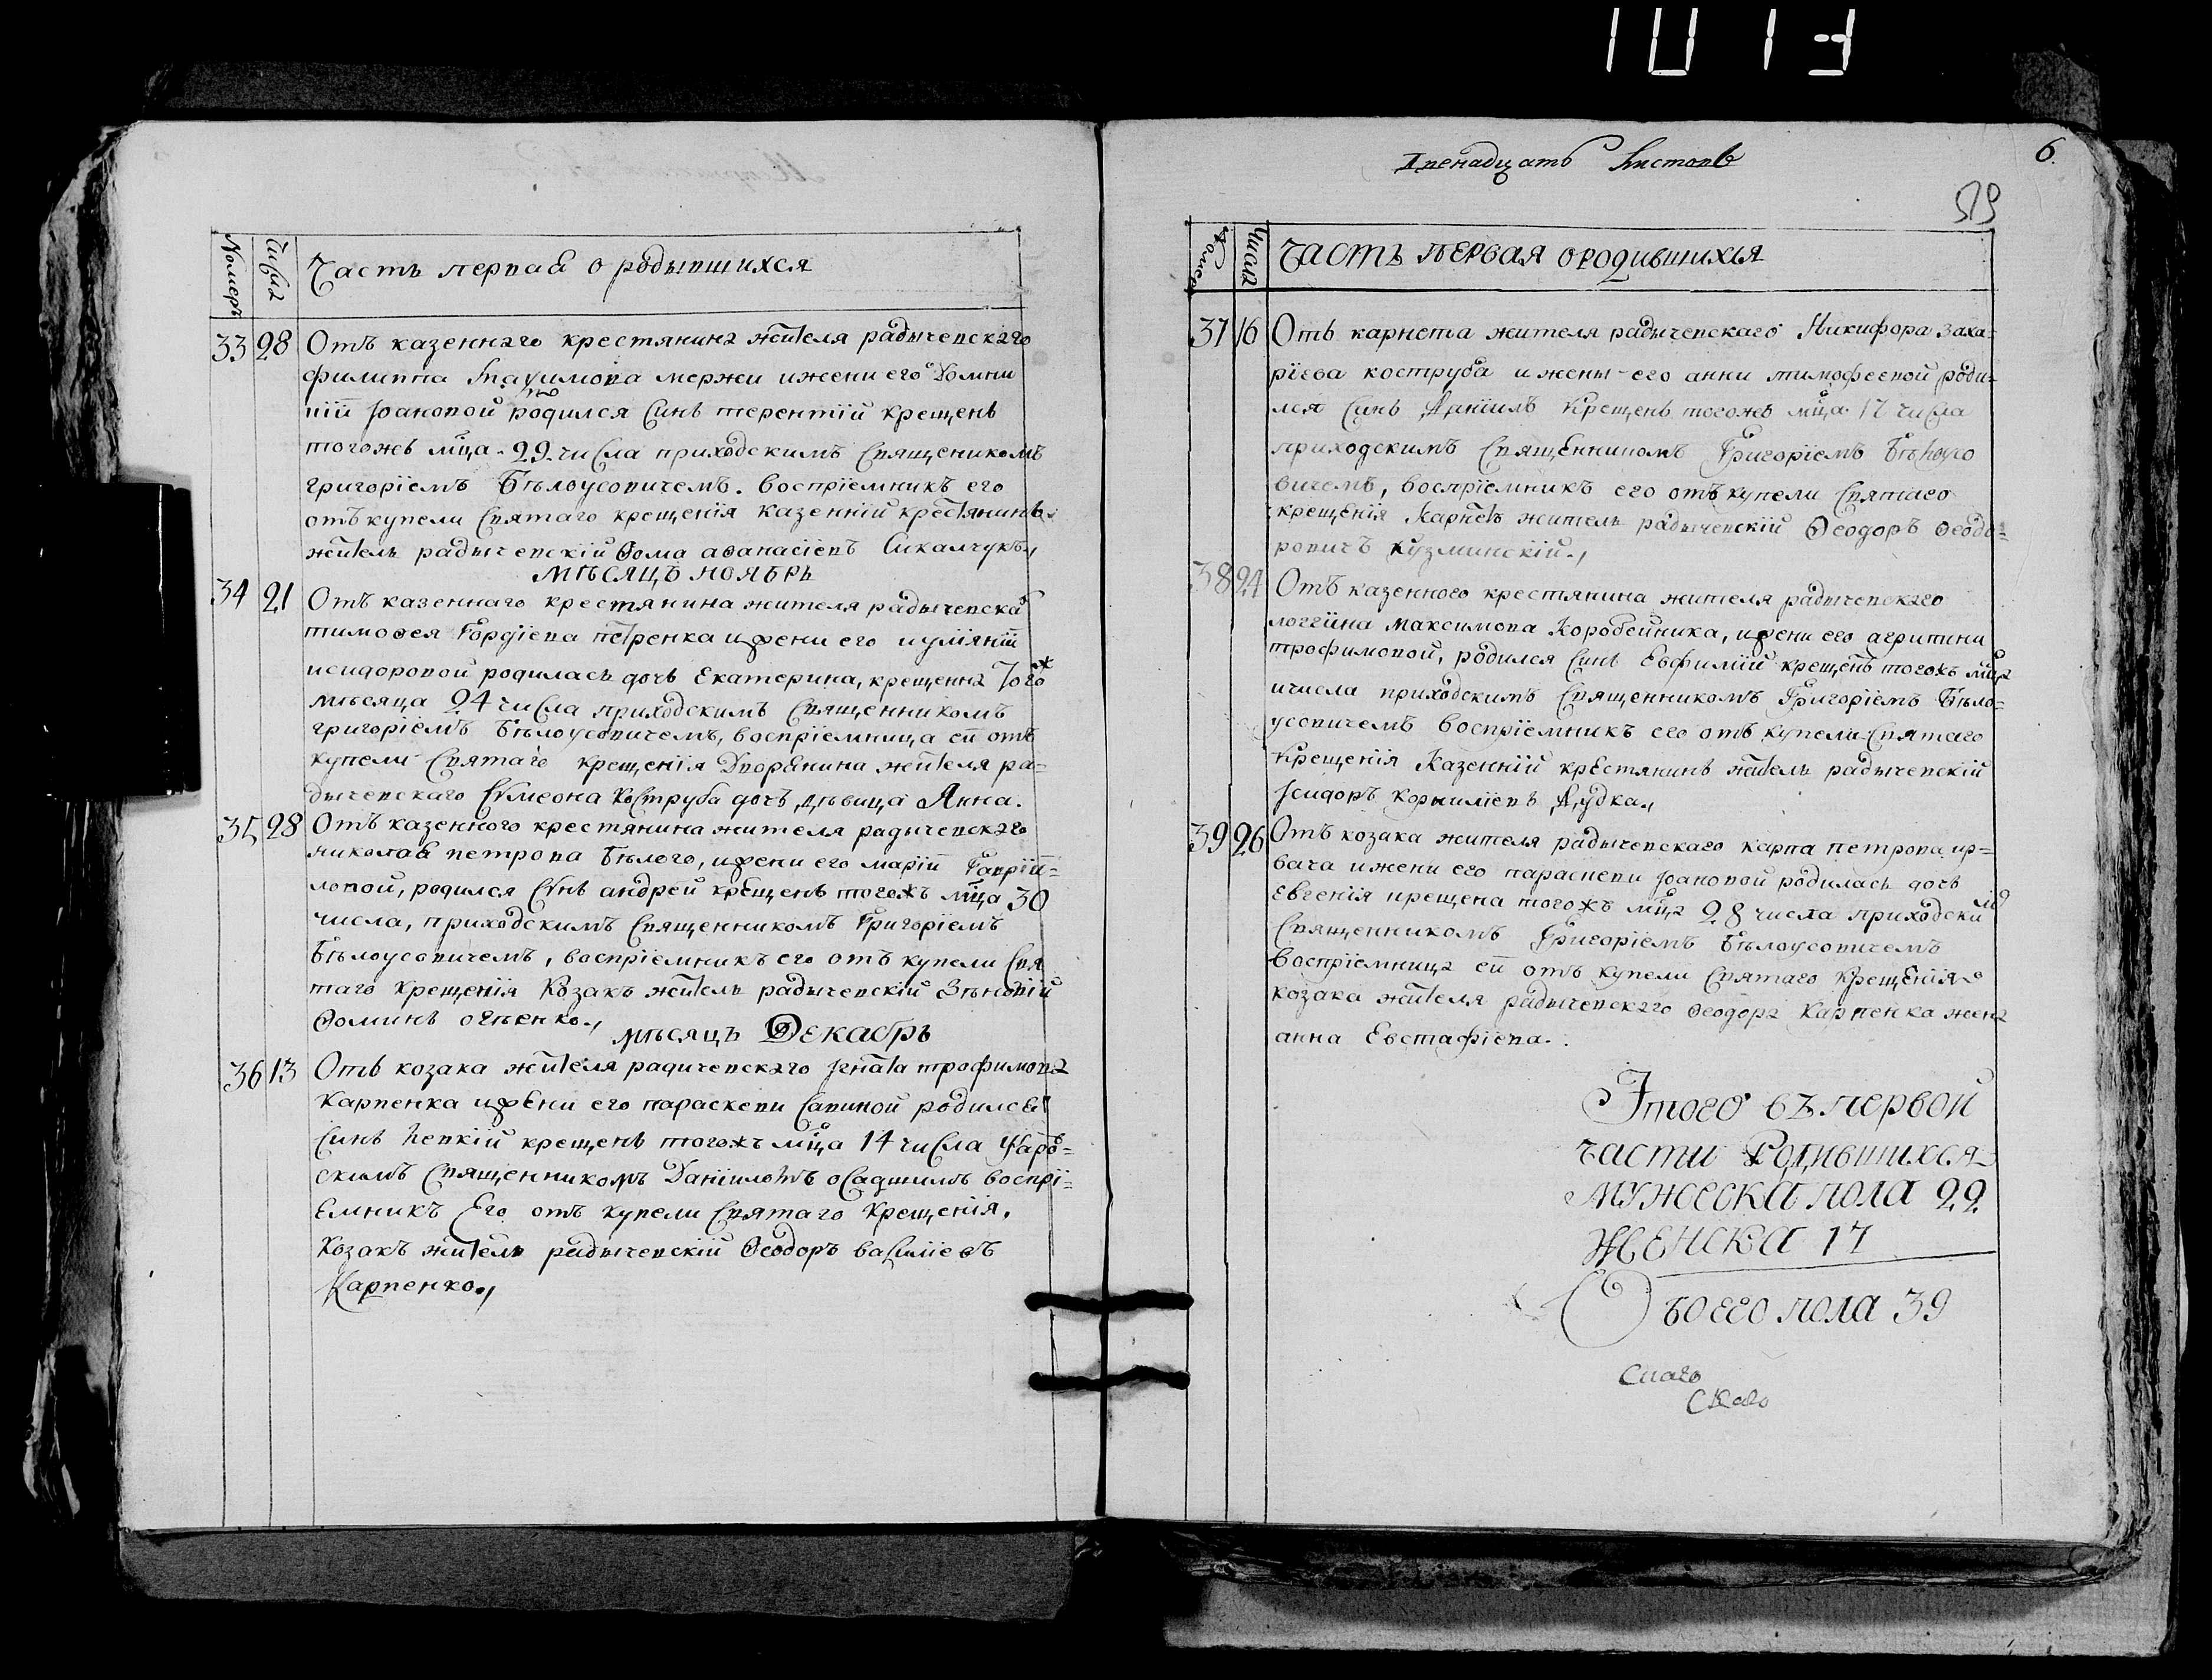 1013
Номеръ
Числа
Часть первая о родывшихся
33 28 Отъ казеннаго крестянина жителя радычевскаго
филиппа мержи ижени его Домни
кіи Іоановой родился Синъ терентій крещенъ
тогожъ мца 29 числа приходскимъ Священикомъ
григоріемъ Бѣлоусовичемъ. воспріемникъ его
отъ купели Святаго крещенія казенній крестянинъ
житель радычевскій Ѳома аѳанасіевъ Сикалчукъ
мѣсяцъ ноябрь
34 21 Отъ казеннаго крестянина жителя радычевска
тимоѳея Гордіева петренка ижени его иуліяніи
исидоровой родилась дочъ Екатерина, крещенна Того ж
мѣсяца 24 числа приходскимъ Священникомъ
григоріемъ Бѣлоусовичемъ, воспріемница еи отъ
купели Святаго крещенія Дворянини жителя ра-
дычевскаго Симеона Коструба дочъ дѣвица Анна.
35 28 Отъ казенного крестянина жителя радычевскаго
николая петрова Бѣлого, ижени его маріи Гавріи-
ловой, родился Сунъ андрей крещенъ тогожъ мца 30
числа, приходскимъ Священникомъ Григоріемъ
Бѣлоусовичемъ, воспріемникъ его отъ купели Свя
таго крещенія Козакъ житель радычевскій Зѣновій
Ѳоминъ огіенко
мѣсяцъ Декабрь
36 13 Отъ козака жителя радичевскаго Ігната трофимова
Карпенка ижени его параскеви Савиной родился
Синъ Левкій крещенъ тогожъ мца 14 числа
скимъ Священникомъ Даніиломъ осадшимъ воспрі-
емникъ Его отъ купели Святаго Крещенія,
Козакъ житель радычевскій Ѳеодоръ василіевъ
Карпенко
Іпенадцать Листовъ
6.
Номеръ
Числа
Часть первая ородившихся
37 16 Отъ карнета жителя радычевскаго Никифора Заха-
ріева коструба ижены его анни тимофеевой роди-
лся Синъ Даніилъ Крещенъ тогожъ мца 17 числа
приходскимъ Священникомъ Григоріемъ Бѣлоусо
вичемъ, воспріемникъ его отъ купели Святаго
крещенія Карнетъ житель радычевскій Ѳеодоръ Ѳеодо-
ровичъ Кузминскій
38 24 Отъ казенного крестянина жителя радычевскаго
логгина Максимова Коробейника, ижени его агрипини
трофимовой, родился Синъ Евфимій крещенъ тогожъ мца
ичисла приходскимъ Священникомъ Григоріемъ Бѣло-
усовичемъ воспріемникъ его отъ купели Святаго
Крещенія Казенній крестянинъ житель радычевскій
Ісидоръ Корниліевъ Дудка
39 26 Отъ козака жителя радычевскаго карпа петрова ир-
вача ижени его параскеви Іоановой родилась дочъ
Евгенія крещена тогожъ мца 28 числа приходским
Священникомъ Григоріемъ Бѣлоусовичемъ
Воспріемница еи отъ купели Святаго Крещенія
козака жителя радычевскаго Ѳеодора Карпенка жена
анна Евстафіева.
Этого въ первой
части Родившихся
мужеска пола 22
Женска 17
Обоего пола 39
скаго